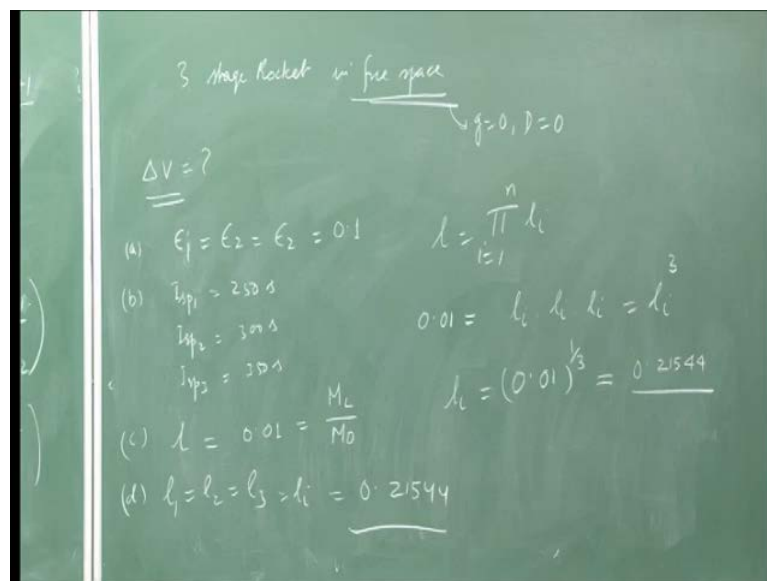 3 stage Rocket in free space
g=0, D=0
ΔV = ?
(a) ϵ₁ = ϵ₂ = ϵ₂ = 0.1
(b) Isp₁ = 250 s
Isp₂ = 300 s
Isp₃ = 350 s
(c) l = 0.01 = M_L / M_0
(d) l₁ = l₂ = l₃ = lᵢ = 0.21544
l = ∏ᵢ₌₁ⁿ lᵢ
0.01 = lᵢ · lᵢ lᵢ = lᵢ³
lᵢ = (0.01)^1/3 = 0.21544